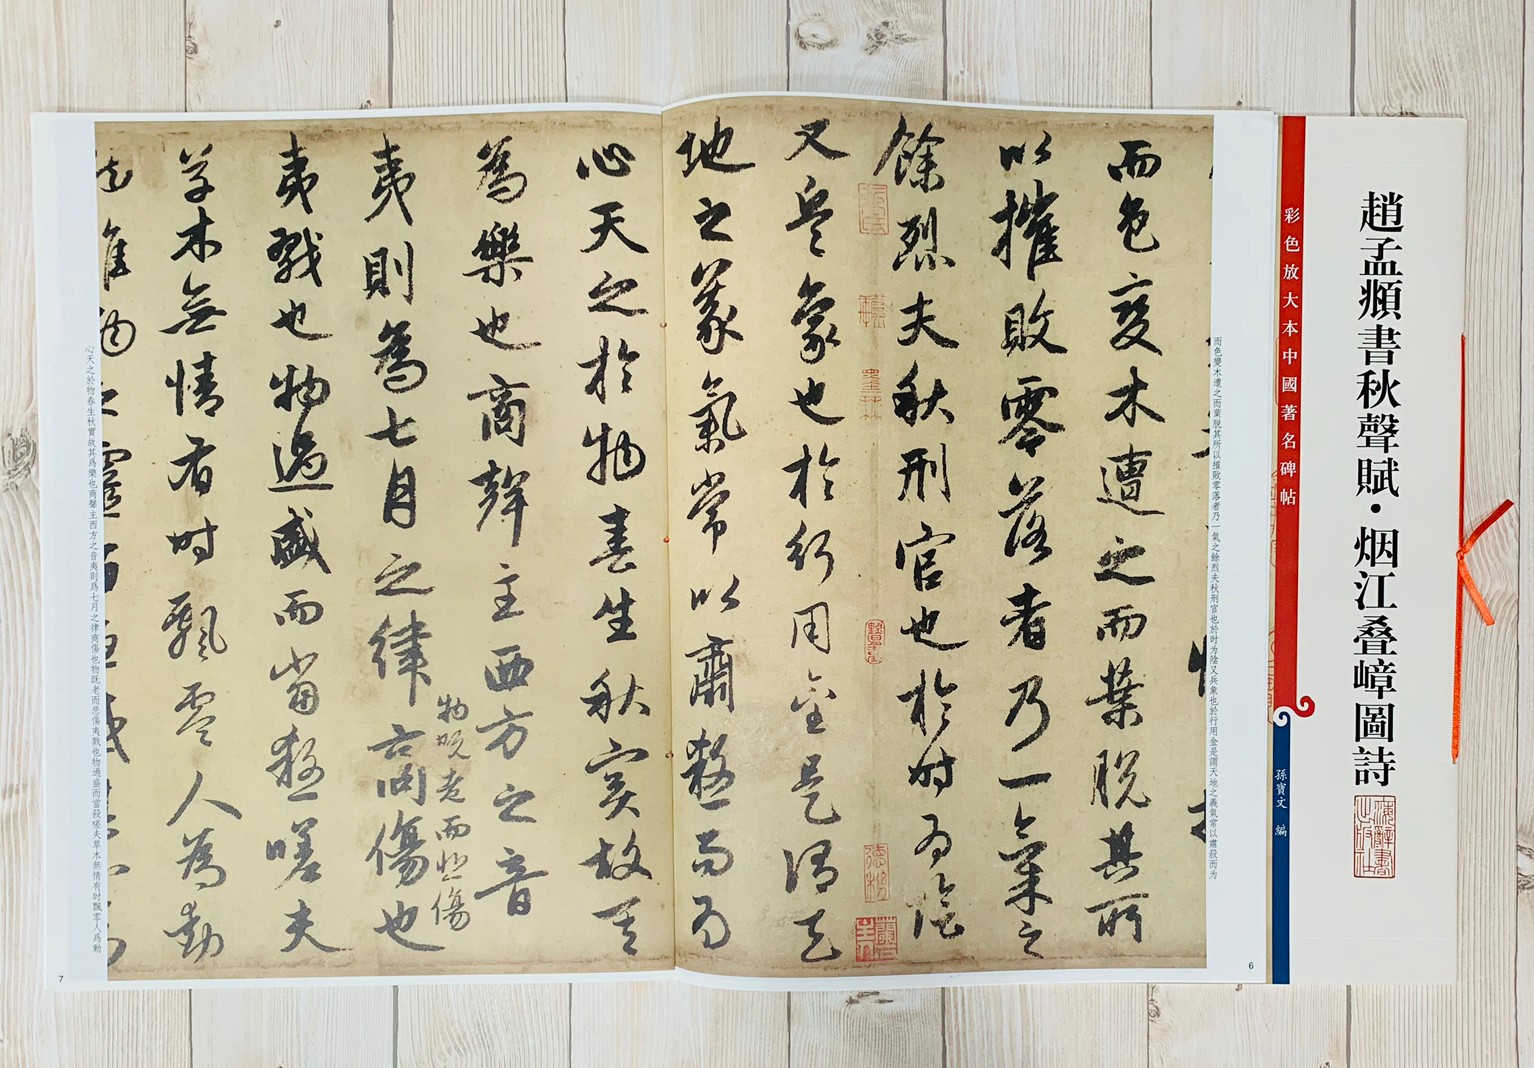 趙孟頫書秋聲賦·烟江叠嶂圖詩
彩色放大本中國著名碑帖
孫寶文 編
而色變木遭之而葉脫其所以摧敗零落者乃一氣之餘烈夫秋刑官也於时为陰又兵象也於行用金是謂天地之義氣常以肅殺而为
6
而色变木遭之而葉脫其所
以摧敗零落者乃一氣之
餘烈夫秋刑官也於时为陰
又兵象也於行用金是谓天
地之義氣常以肅殺而为
心天之於物春生秋实故其
為樂也商聲主西方之音
物既老而悲傷
夷則為七月之律商傷也
夷戮也物過盛而當殺嗟夫
草木無情有时飄零人為動
心天之於物春生秋實故其爲樂也商聲主西方之音夷則爲七月之律商傷也物既老而悲傷夷戮也物過盛而當殺嗟夫草木無情有时飄零人爲動
7